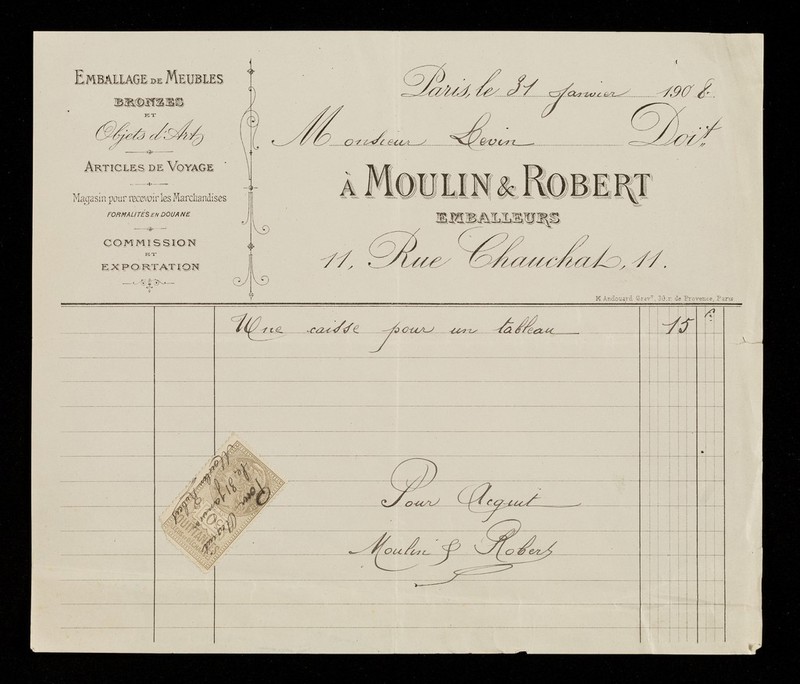 EMBALLAGE DE MEUBLES
BRONZES
ET
Objets d'Art
ARTICLES DE VOYAGE
Magasin pour recevoir les Marchandises
FORMALITÉS EN DOUANE
COMMISSION
ET
EXPORTATION
Paris, le 31 Janvier 1908
Monsieur Levin Doit
À MOULIN & ROBERT
EMBALLEURS
11, Rue Chauchat, 11.
M. Andouard Grav. 30, r. de Provence, Paris
Une caisse pour un tableau 15 f.
Pour Acquit
Moulin & Robert
Pour Acquit